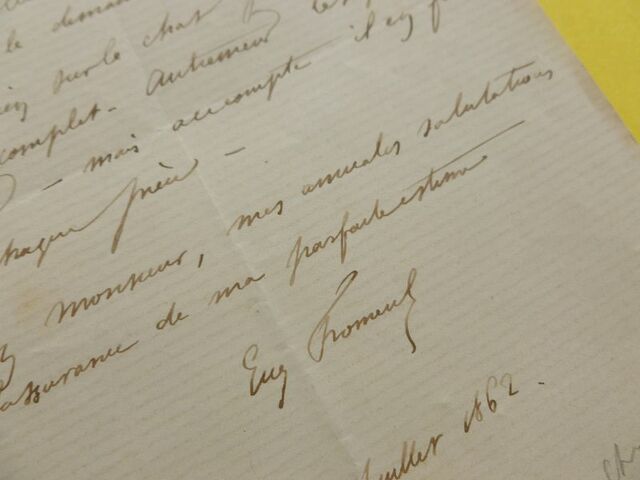 le deman
sur le chat
complet - autrement les
- mais accompte il ey
chaque pièce -
monsieur, mes amicales salutations
assurance de ma parfaite estime
Eug Froment
juillet 1862.